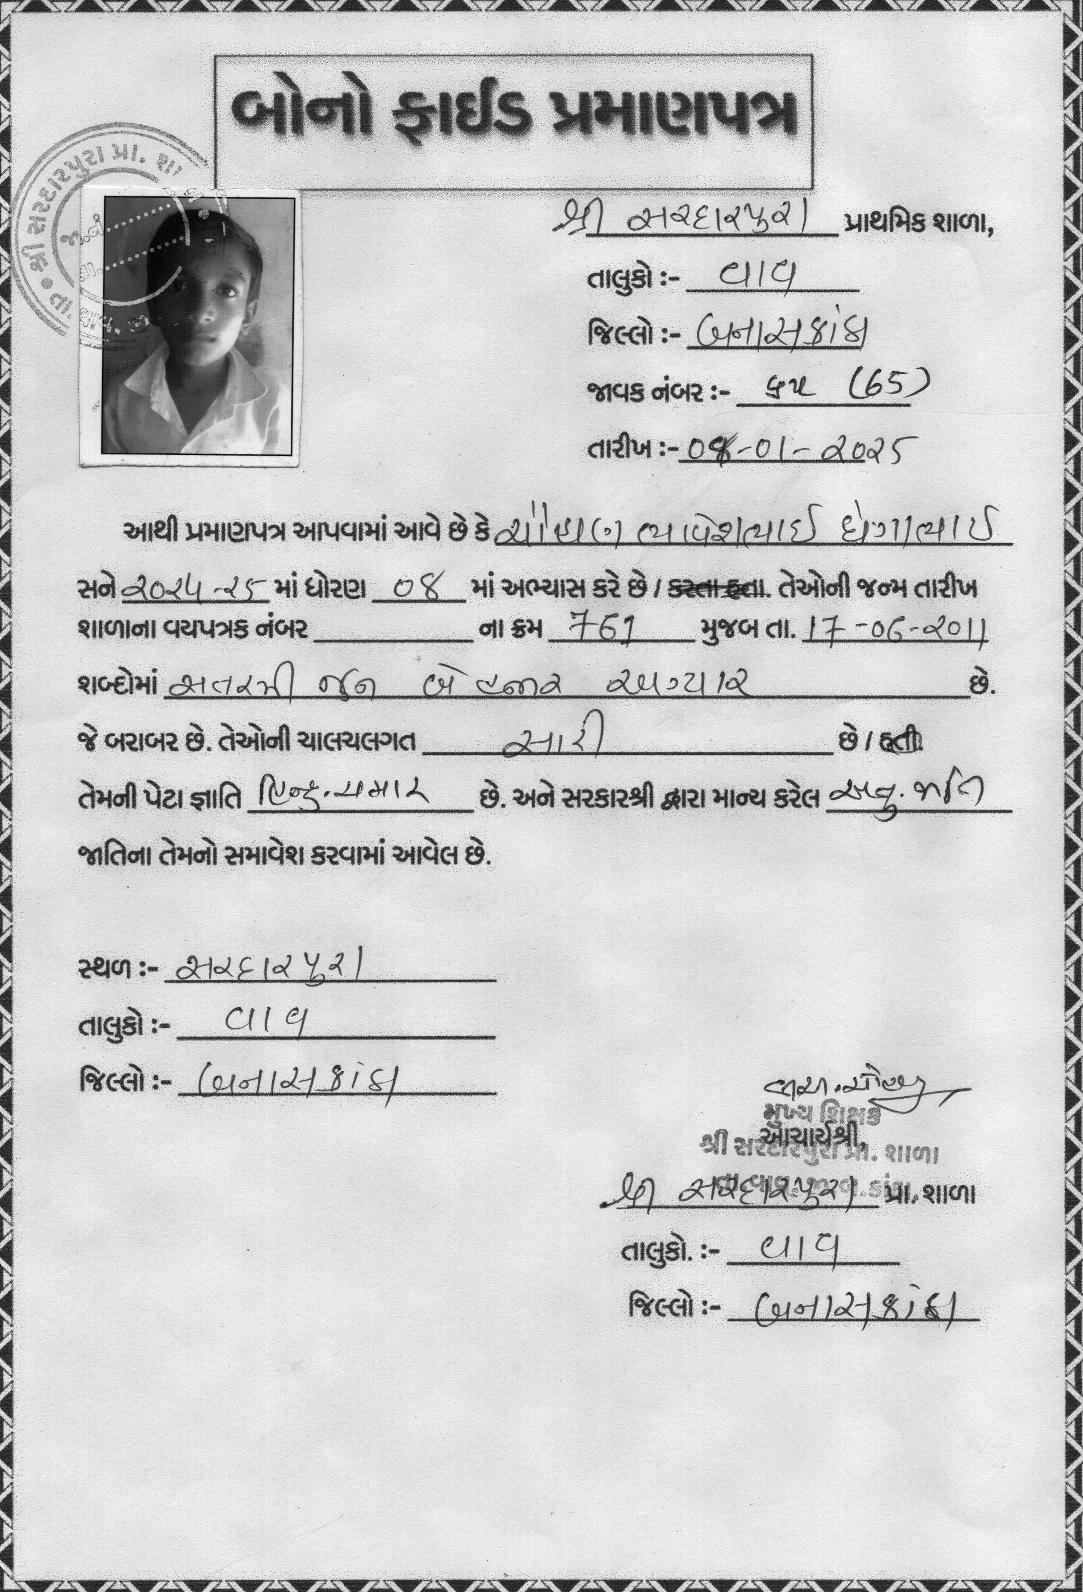 બોનો ફાઈડ પ્રમાણપત્ર
શ્રી સરદારપુરા પ્રા. શા
શ્રી સરદારપુરા પ્રાથમિક શાળા,
તાલુકો :- વાવ
જિલ્લો :- બનાસકાંઠા
જાવક નંબર :- ૬૫ (65)
તારીખ :- ૦૪-૦૧-૨૦૨૫
આથી પ્રમાણપત્ર આપવામાં આવે છે કે ચૌહાણ ભાવેશભાઈ
સને ૨૦૨૪-૨૫ માં ધોરણ ૦૪ માં અભ્યાસ કરે છે / કરતા હતા. તેઓની જન્મ તારીખ
શાળાના વયપત્રક નંબર ના ક્રમ 761 મુજબ તા. 17-06-૨૦11
શબ્દોમાં સતરમી જુન બે હજાર અગ્યાર છે.
જે બરાબર છે. તેઓની ચાલચલગત સારી છે / હતી.
તેમની પેટા જ્ઞાતિ હિન્દુ.ચમાર છે. અને સરકારશ્રી દ્વારા માન્ય કરેલ અનુ.જાતિ
જાતિના તેમનો સમાવેશ કરવામાં આવેલ છે.
સ્થળ :- સરદારપુરા
તાલુકો :- વાવ
જિલ્લો :- બનાસકાંઠા
મુખ્ય શિક્ષક
આચાર્યશ્રી,
શ્રી સરદારપુરા પ્રા. શાળા
શ્રી સરદારપુરા પ્રા. શાળા
તાલુકો. :- વાવ
જિલ્લો :- બનાસકાંઠા